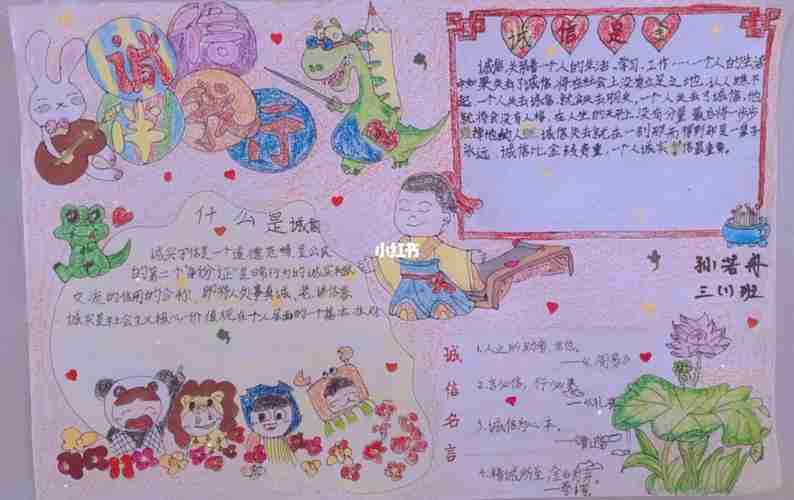 诚信
伴我行
诚信是金
诚信,关系着一个人的生活、学习、工作……一个人的生活
中如果失去了诚信,将在社会上没有立足之地,让人瞧不
起,一个人失去诚信,就等失去朋友,一个人失去了诚信,他
就将会没有人格,在人生的天平上没有分量,最后将一步步
诚信失去就在一刻,那而得到却是一辈子
永远,诚信比金钱贵重,一个人诚实
什么是诚信
诚实守信是一个道德范畴,是公民
的第二个"身份证"是
交流的信用的合称,即待人处事真诚、老
诚实是社会主义核心价值观在个人层面的一个基本
小红书
孙若舟
三(1)班
诚信名言
1.人之所助者,信也。
——《周易》
2.言必信,行必果
3.诚信为人本。
——鲁迅
4.精诚所至,金石